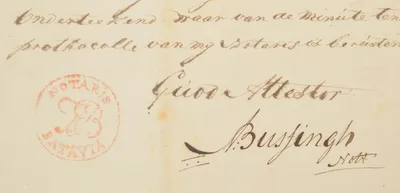 Onderteekend waar van de minute ten
prothocolle van my Notaris is berusten
Quod Attestor
NOTARIS
BATAVIA
Bussingh
Nots